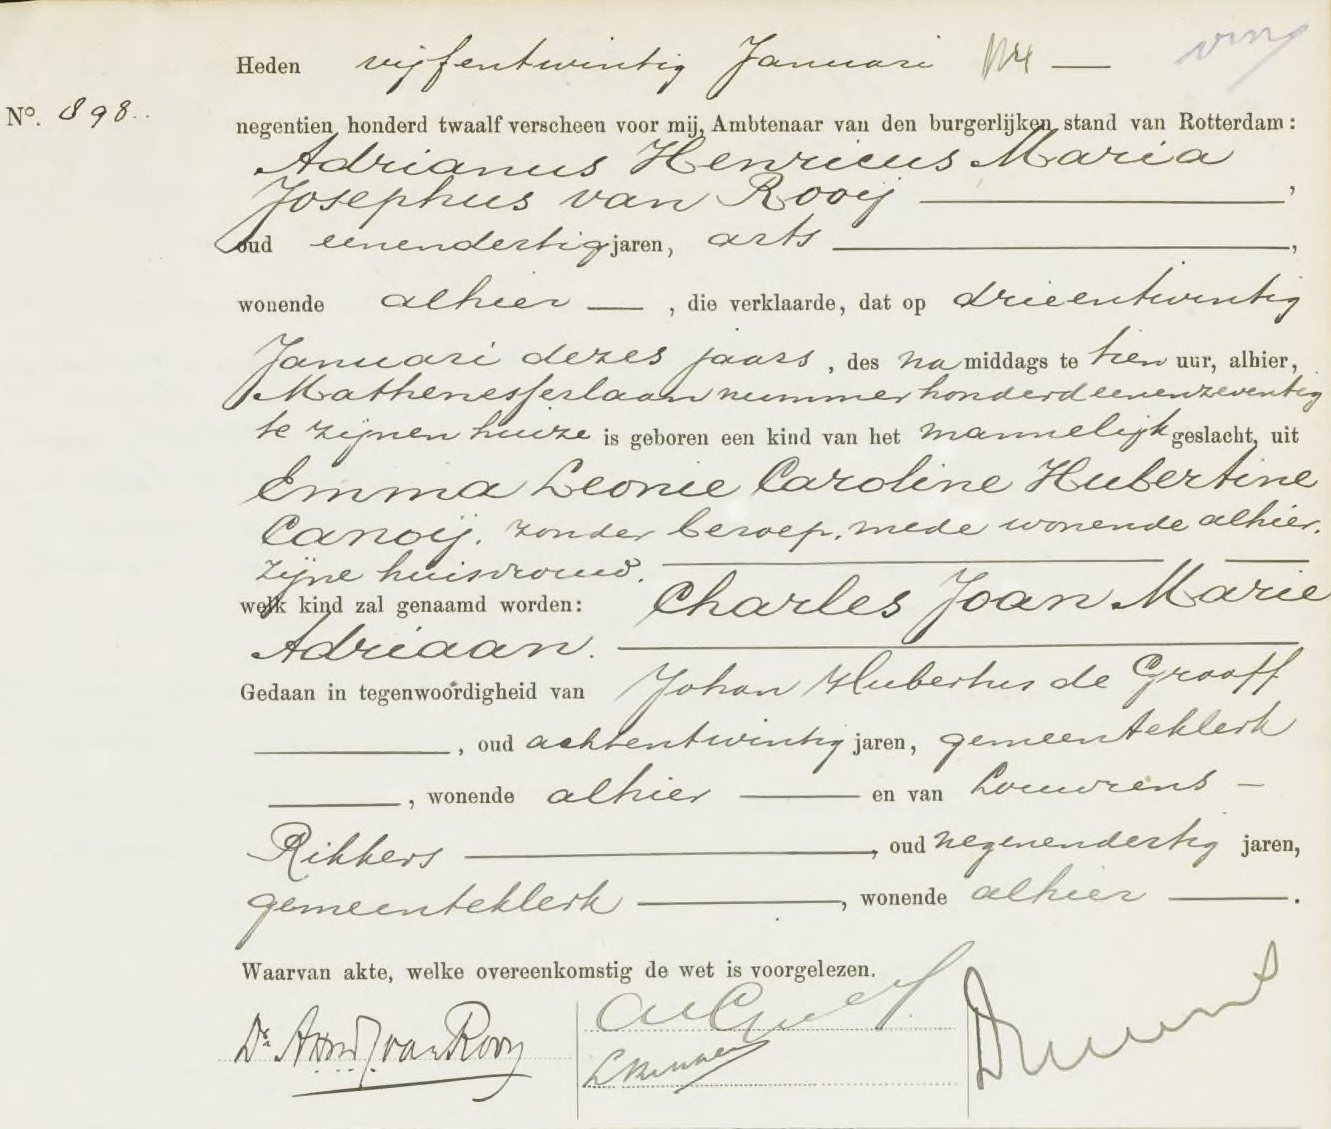 Heden vijfentwintig Januari
No. 898.
negentien honderd twaalf verscheen voor mij, Ambtenaar van den burgerlijken stand van Rotterdam:
Adrianus Henricus Maria
Josephus van Rooij ,
oud eenendertig jaren, arts ,
wonende alhier , die verklaarde, dat op drieentwintig
Januari dezes jaars , des na middags te tien uur, alhier,
Mathenesserlaan nummer honderdeenenzeventig
te zijnen huize is geboren een kind van het mannelijk geslacht, uit
Emma Leonie Caroline Hubertine
Canoij. zonder beroep. mede wonende alhier.
zijne huisvrouw.
welk kind zal genaamd worden: Charles Joan Marie
Adriaan.
Gedaan in tegenwoordigheid van Johan Hubertus de Graaff
, oud achtentwintig jaren, gemeenteklerk
, wonende alhier en van Louwrens
Rikkers , oud negenendertig jaren,
gemeenteklerk , wonende alhier .
Waarvan akte, welke overeenkomstig de wet is voorgelezen.
Dr. van Rooy